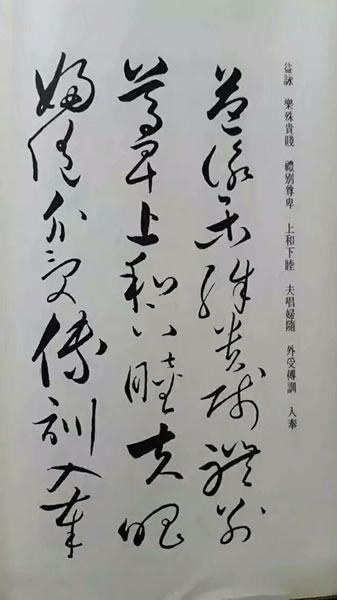 益詠　樂殊貴賤　禮別尊卑　上和下睦　夫唱婦隨　外受傅訓　入奉
益詠樂殊貴賤禮別
尊卑上和下睦夫唱
婦隨外受傅訓入奉